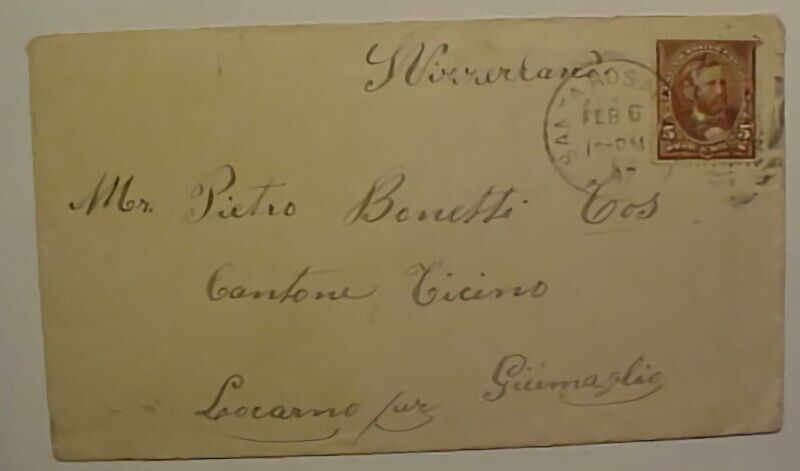 Svizzerland
SANTA ROSA
FEB 6
PM
97
5 5
Mr. Pietro Bonetti Cos
Cantone Ticino
Locarno per Giümaglio